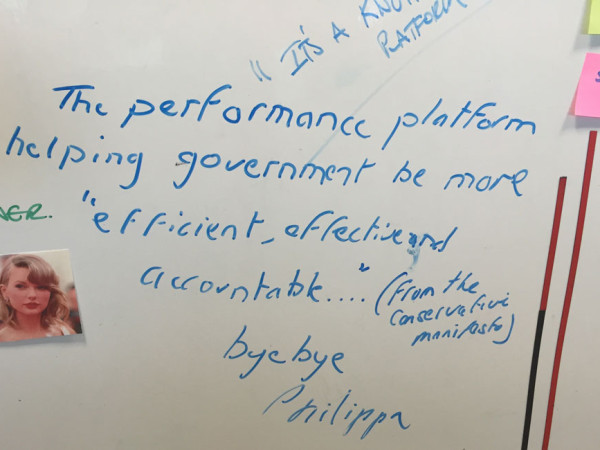 "IT'S A
PLATFORM
The performance platform
helping government be more
NER.
"efficient, effective and
accountable...."
(from the
conservative
manifesto)
bye bye
Philippa